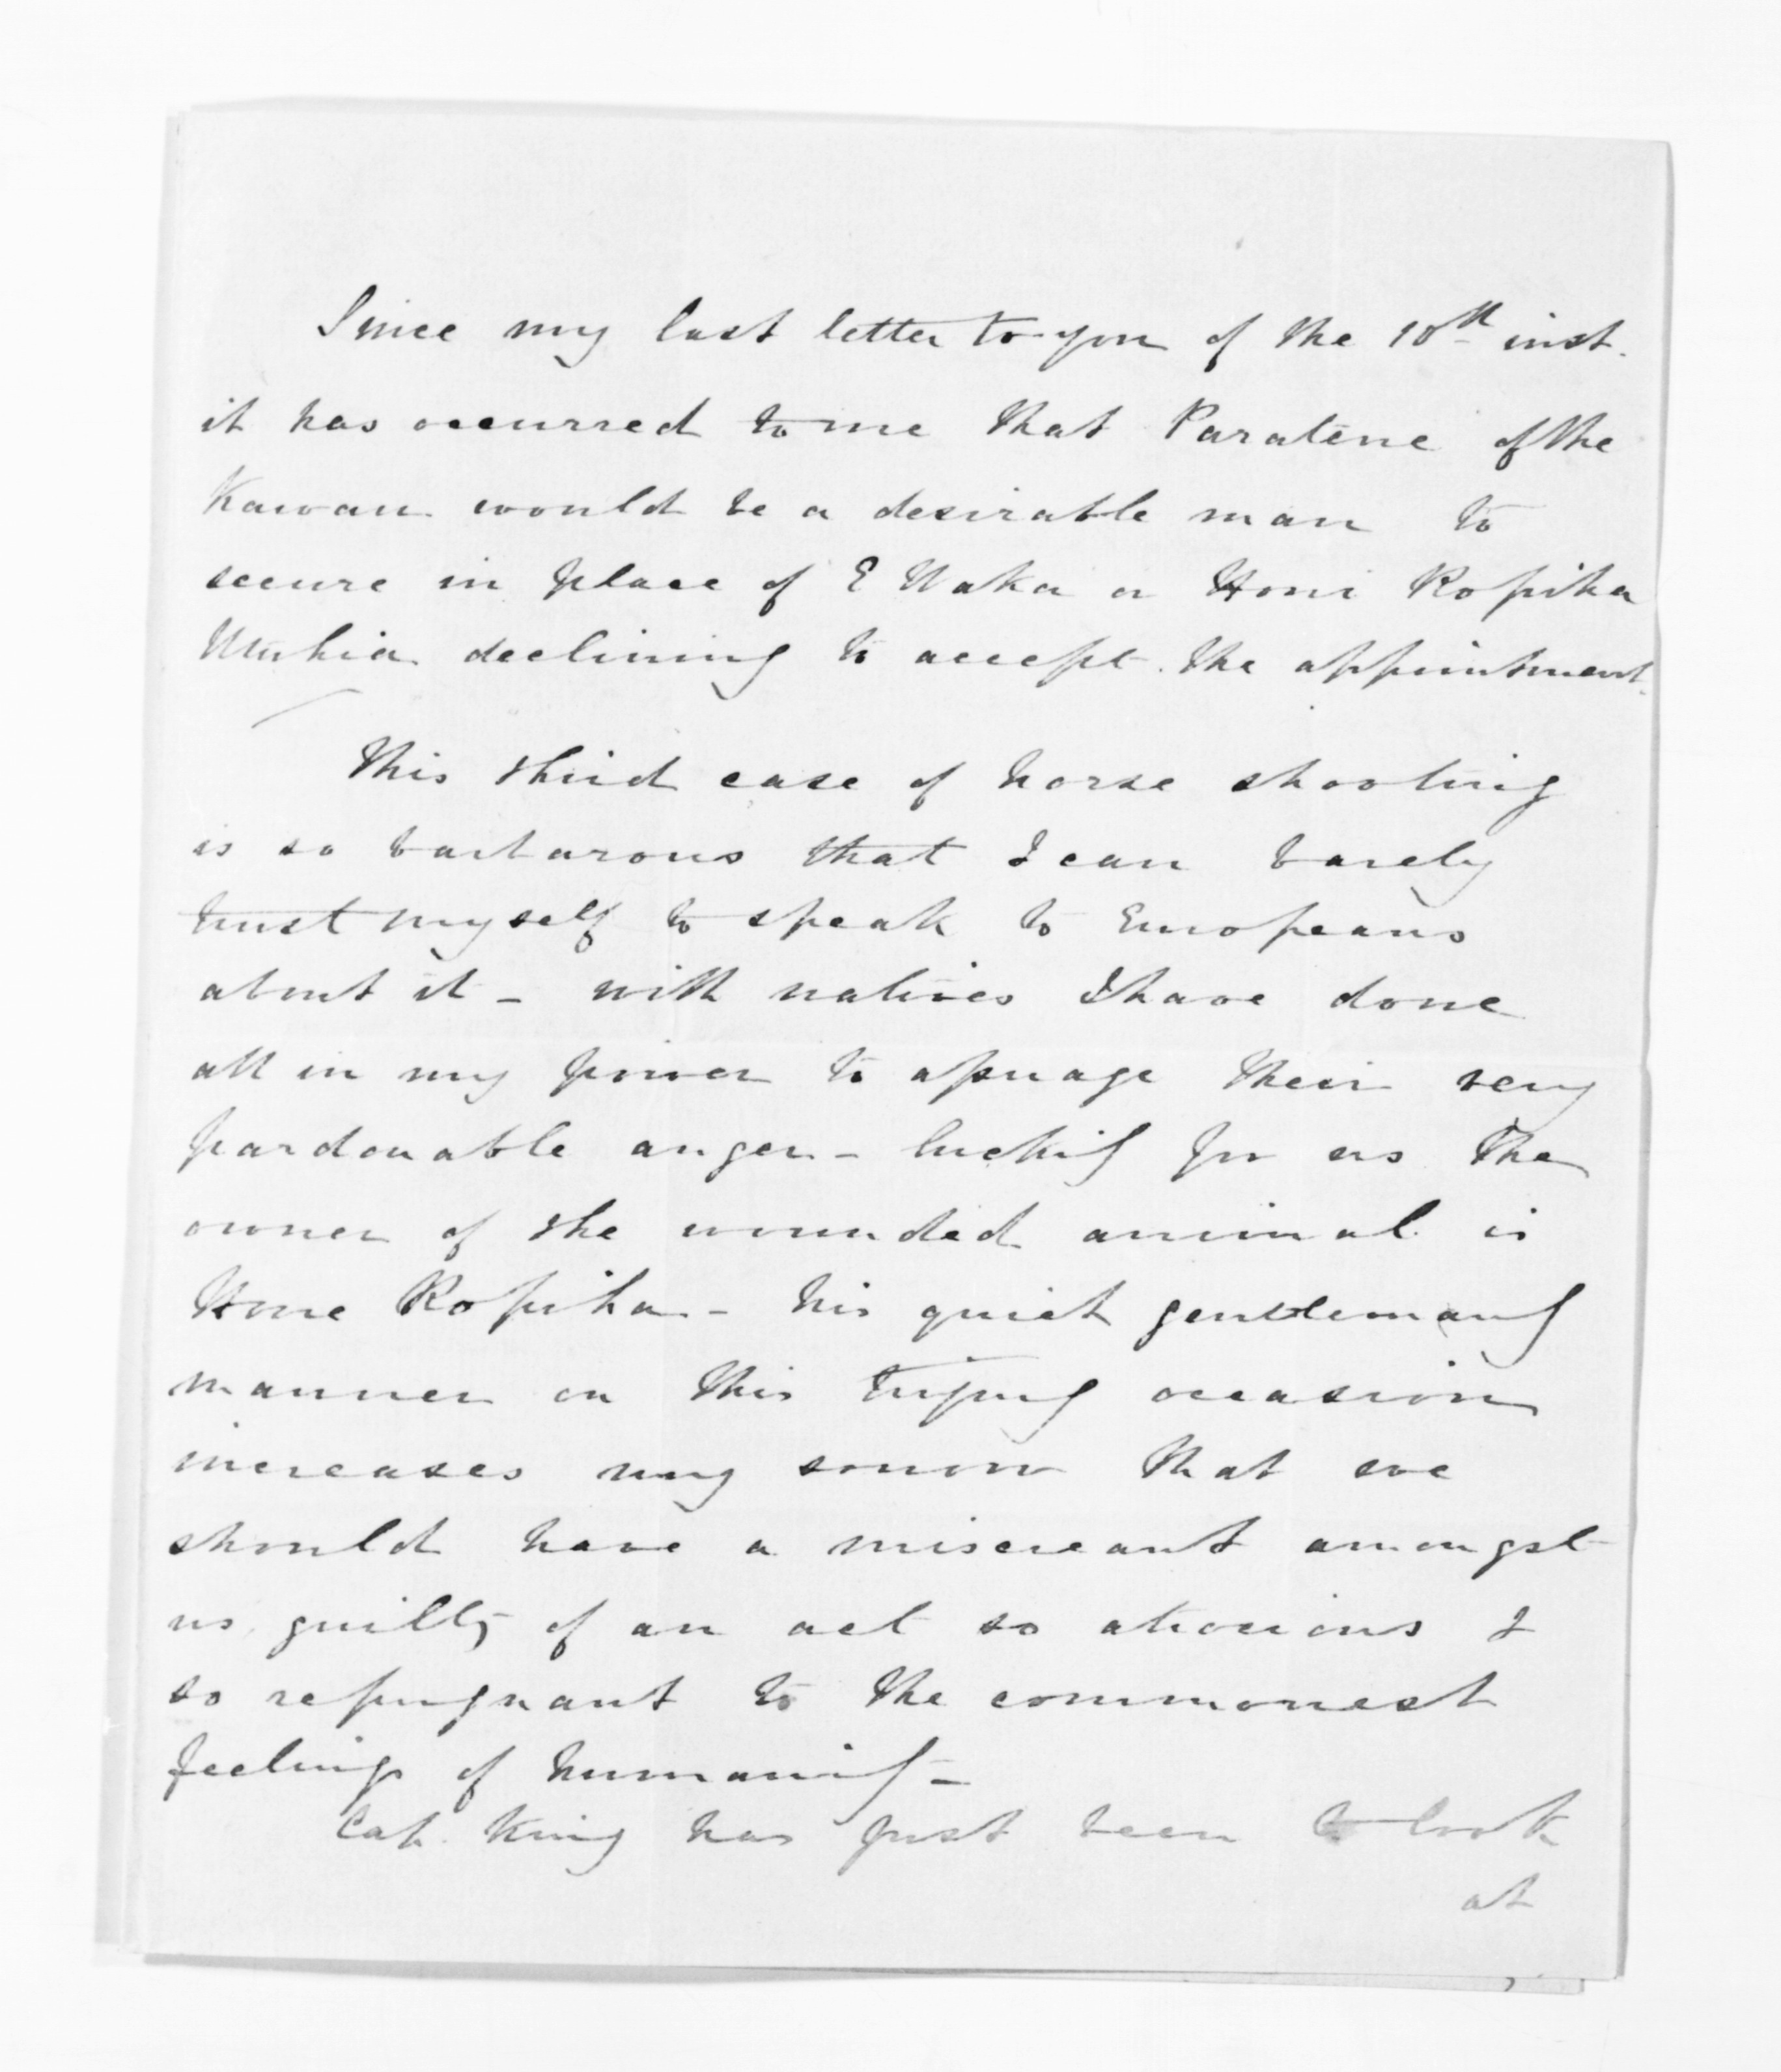 Since my last letter to you of the 10th inst.
it has occurred to me that Paratene of the
Kawau would be a desirable man to
secure in place of E Waka or Honi Ropiha
declining to accept the appointment.
This third case of horse shooting
is so barbarous that I can barely
trust myself to speak to Europeans
about it - with natives I have done
all in my power to assuage their very
pardonable anger - luckily for us the
owner of the wounded animal is
Hone Ropiha - his quiet gentlemanly
manner on this trying occasion
increases my sorrow that we
should have a miscreant amongst
us guilty of an act so atrocious &
so repugnant to the commonest
feelings of humanity -
Cap. King has just been to look
at